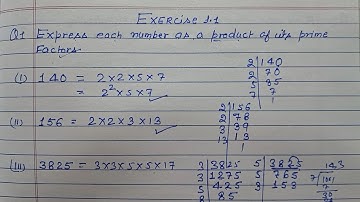 EXERCISE 1.1
Q1 Express each number as a product of its prime
Factors.
(I) 140 = 2×2×5×7
= 2²×5×7
2 | 140
2 | 70
5 | 35
7 | 7
1
(II) 156 = 2×2×3×13
2 | 156
2 | 78
3 | 39
13 | 13
1
(III) 3825 = 3×3×5×5×17
3 | 3825
3 | 1275
5 | 425
5 | 85
5 | 3825
5 | 765
3 | 153
143